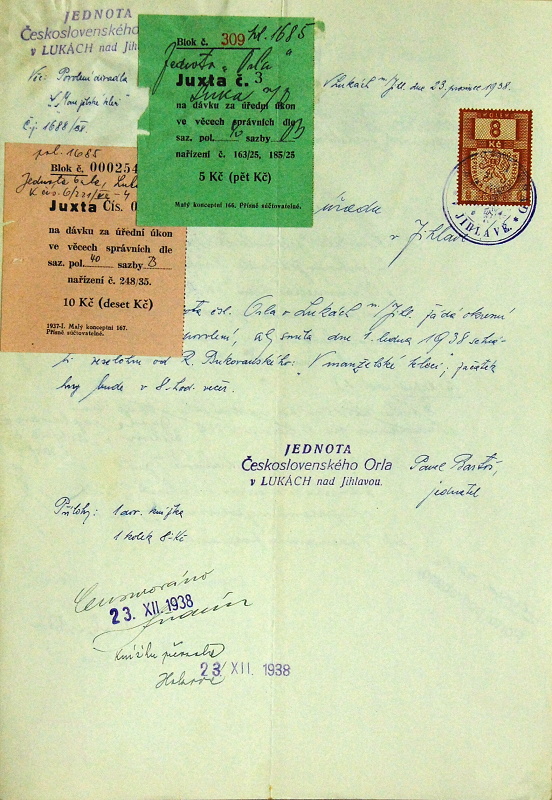 JEDNOTA
Československého
v LUKÁCH nad Jihl
Věc: Povolení divadla
"V manželské kleci"
Čj 1688/38.
Blok č. 309 pol. 1685
Jednota „Orla"
Juxta č. 3
Luka n/J
na dávku za úřední úkon
ve věcech správních dle
saz. pol. 40 sazby B
nařízení č. 163/25, 185/25
5 Kč (pět Kč)
Malý konceptní 166. Přísně súčtovatelné.
V Lukách n/Jihl. dne 23. prosince 1938.
8
Kč
JIHLAVĚ
pol. 1685
Blok č. 000254
Jednota Orla, Luka
Juxta Čís. 0
na dávku za úřední úkon
ve věcech správních dle
saz. pol. 40 sazby B
nařízení č. 248/35.
10 Kč (deset Kč)
1937-I. Malý konceptní 167.
Přísně súčtovatelné.
úřadu
v Jihlavě
ta čsl. Orla v Lukách n/Jihl. žádá okresní
povolení, aby směla dne 1. ledna 1938
veselohru od R. Bukovanského: "V manželské kleci", začátek
hry bude v 8 hod. večer.
JEDNOTA
Československého Orla
v LUKÁCH nad Jihlavou.
Pavel Bartoš,
jednatel
Přílohy: 1 div. knížka
1 kolek 8 Kč
Censurováno
23. XII. 1938
Knížku
23 XII. 1938